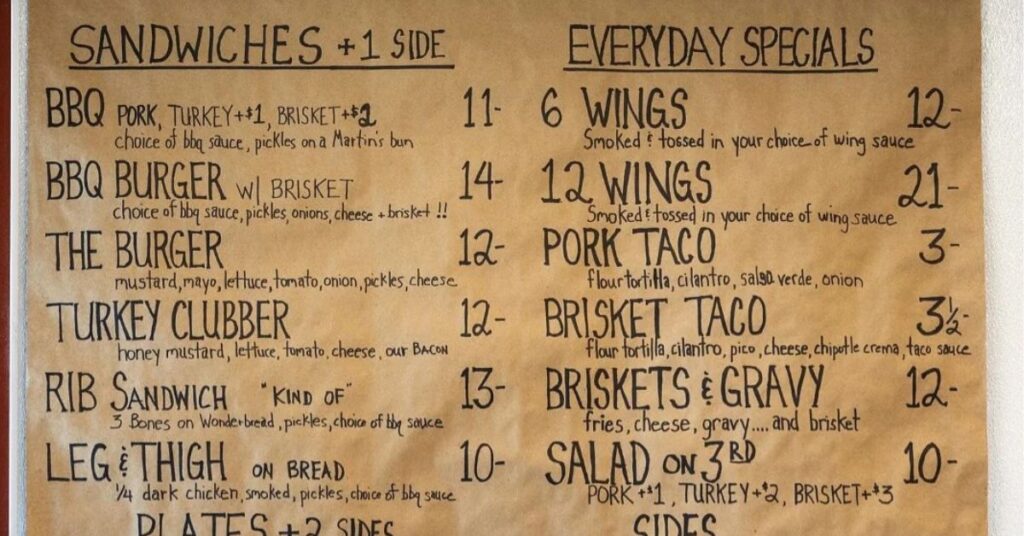 SANDWICHES +1 SIDE
BBQ PORK, TURKEY+$1, BRISKET+$2 11-
choice of bbq sauce, pickles on a Martin's bun
BBQ BURGER w/ BRISKET 14-
choice of bbq sauce, pickles, onions, cheese + brisket !!
THE BURGER 12-
mustard, mayo, lettuce, tomato, onion, pickles, cheese
TURKEY CLUBBER 12-
honey mustard, lettuce, tomato, cheese, our BACON
RIB SANDWICH "KIND OF" 13-
3 Bones on Wonderbread, pickles, choice of bbq sauce
LEG & THIGH ON BREAD 10-
1/4 dark chicken, smoked, pickles, choice of bbq sauce
PLATES +2 SIDES
EVERYDAY SPECIALS
6 WINGS 12-
Smoked & tossed in your choice of wing sauce
12 WINGS 21-
Smoked & tossed in your choice of wing sauce
PORK TACO 3-
flour tortilla, cilantro, salsa verde, onion
BRISKET TACO 3½-
flour tortilla, cilantro, pico, cheese, chipotle crema, taco sauce
BRISKETS & GRAVY 12-
fries, cheese, gravy.... and brisket
SALAD ON 3RD 10-
PORK+$1, TURKEY+$2, BRISKET+$3
SIDES